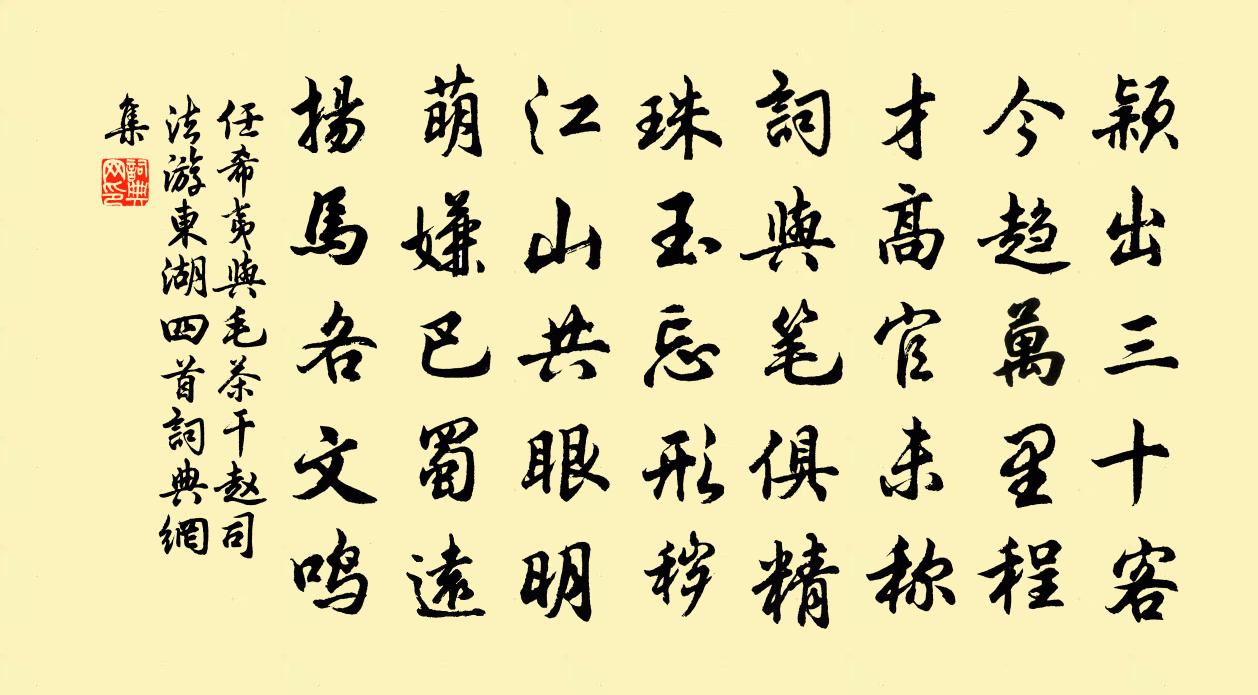 颖出三十客
今趋萬里程
才高官未称
詞與笔俱精
珠玉忘形秽
江山共眼明
萌嫌巴蜀遠
揚馬各文鳴
任希夷與毛茶干赵司
法游東湖四首詞典網
集
詞典网印